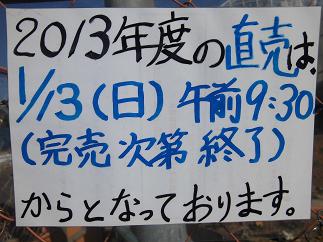 2013年度の直売は、
1/13(日)午前9:30
(完売次第終了)
からとなっております。